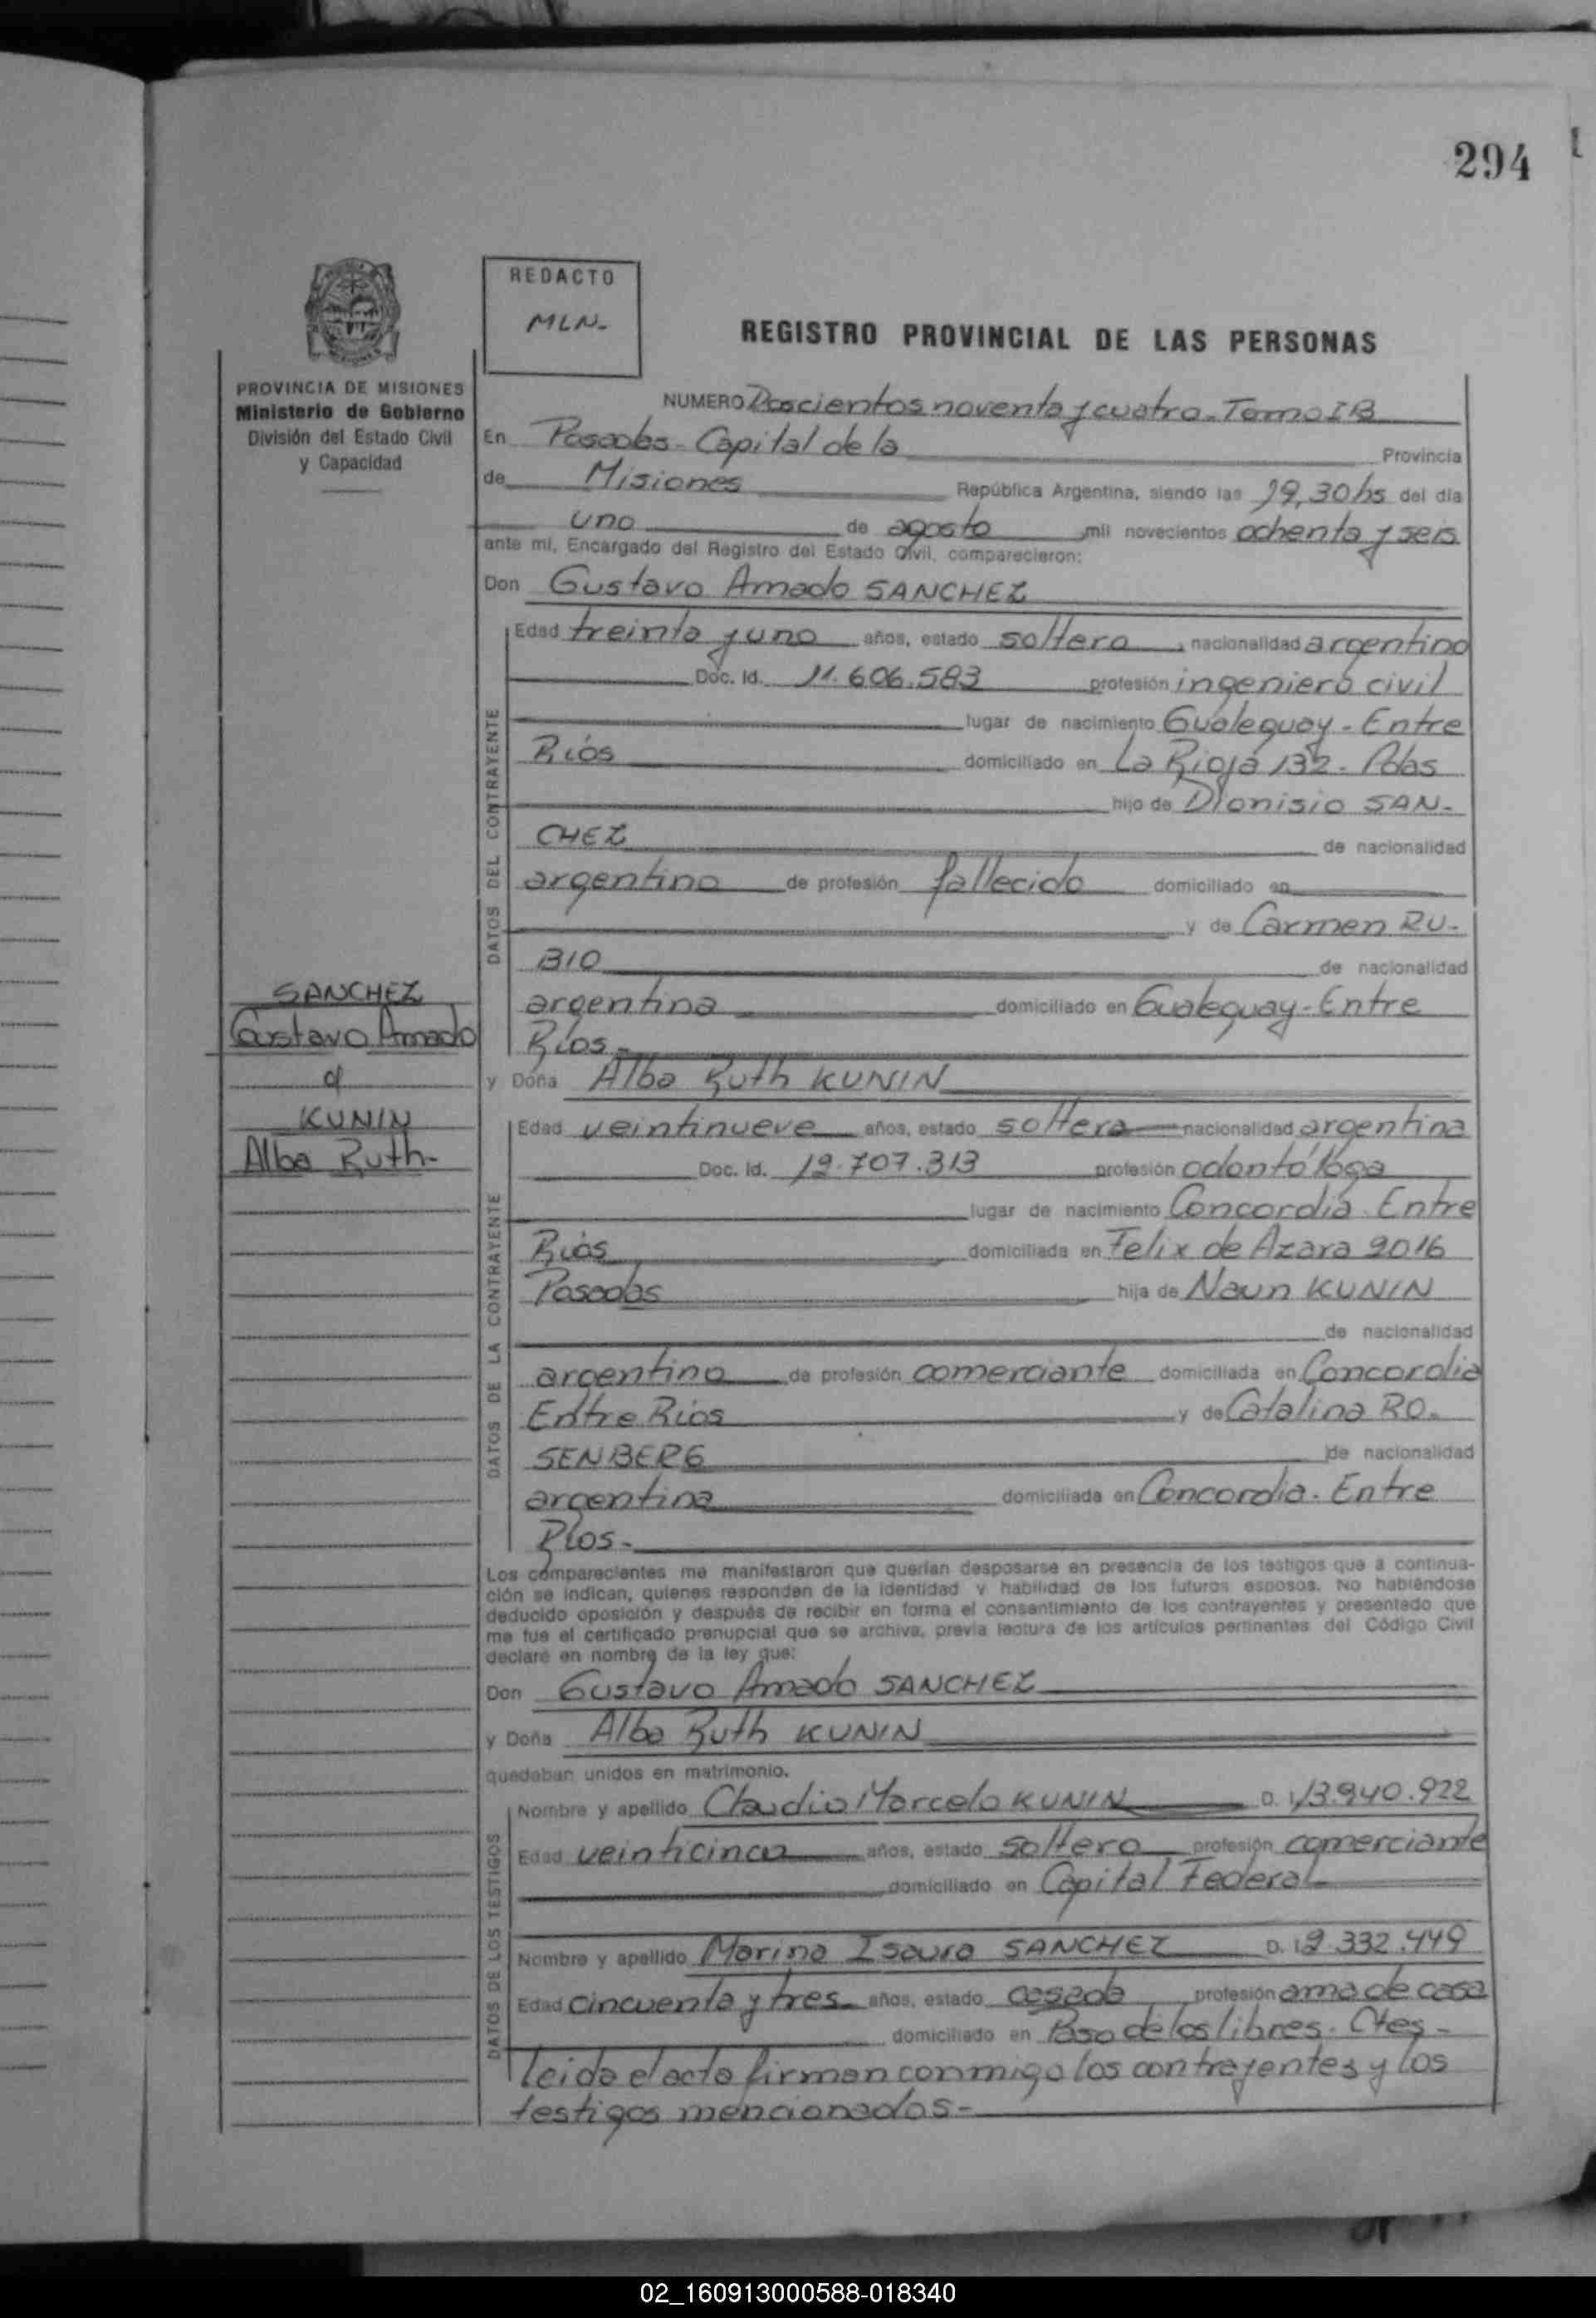 294
REDACTO
MLN-
REGISTRO PROVINCIAL DE LAS PERSONAS
PROVINCIA DE MISIONES
Ministerio de Gobierno
División del Estado Civil
y Capacidad
NUMERO Doscientos noventa y cuatro - Tomo I B
En Posadas - Capital de la Provincia
de Misiones República Argentina, siendo las 19,30 hs del día
uno de agosto mil novecientos ochenta y seis
ante mí, Encargado del Registro del Estado Civil, comparecieron:
Don Gustavo Amado SANCHEZ
DATOS DEL CONTRAYENTE
Edad treinta y uno años, estado soltero, nacionalidad argentino
Doc. Id. 11.606.583 profesión ingeniero civil
lugar de nacimiento Gualeguay - Entre
Ríos domiciliado en La Rioja 132 - Pdas
hijo de Dionisio SAN-
CHEZ de nacionalidad
argentino de profesión fallecido domiciliado en
y de Carmen RU-
BIO de nacionalidad
argentina domiciliado en Gualeguay - Entre
Ríos -
SANCHEZ
Gustavo Amado
c/
KUNIN
Alba Ruth -
y Doña Alba Ruth KUNIN
DATOS DE LA CONTRAYENTE
Edad veintinueve años, estado soltera nacionalidad argentina
Doc. Id. 12.707.313 profesión odontóloga
lugar de nacimiento Concordia Entre
Ríos domiciliada en Felix de Azara 2016
Posadas hija de Naun KUNIN
de nacionalidad
argentino de profesión comerciante domiciliada en Concordia
Entre Ríos y de Catalina RO-
SENBERG de nacionalidad
argentina domiciliada en Concordia - Entre
Ríos -
Los comparecientes me manifestaron que querían desposarse en presencia de los testigos que a continua-
ción se indican, quienes responden de la identidad y habilidad de los futuros esposos. No habiéndose
deducido oposición y después de recibir en forma el consentimiento de los contrayentes y presentado que
me fue el certificado prenupcial que se archiva, previa lectura de los artículos pertinentes del Código Civil
declaré en nombre de la ley que:
Don Gustavo Amado SANCHEZ
y Doña Alba Ruth KUNIN
quedaban unidos en matrimonio.
DATOS DE LOS TESTIGOS
Nombre y apellido Claudio Marcelo KUNIN D. I. 13.940.922
Edad veinticinco años, estado soltero profesión comerciante
domiciliado en Capital Federal
Nombre y apellido Marina Isaura SANCHEZ D. I. 2.332.449
Edad cincuenta y tres años, estado casada profesión ama de casa
domiciliado en Paso de los libres - Ctes -
leida el acta firman conmigo los contrayentes y los
testigos mencionados -
02_160913000588-018340